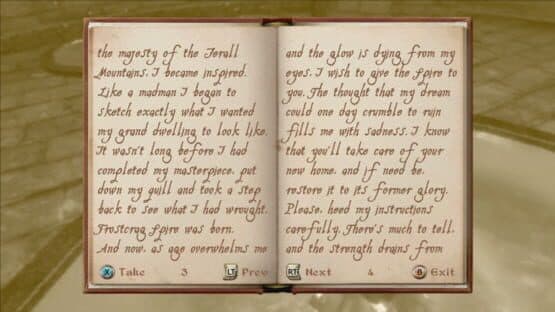 the majesty of the Jerall
Mountains, I became inspired.
Like a madman I began to
sketch exactly what I wanted
my grand dwelling to look like.
It wasn't long before I had
completed my masterpiece, put
down my quill and took a step
back to see what I had wrought.
Frostcrag Spire was born.
And now, as age overwhelms me
and the glow is dying from my
eyes, I wish to give the Spire to
you. The thought that my dream
could one day crumble to ruin
fills me with sadness. I know
that you'll take care of your
new home, and if need be,
restore it to its former glory.
Please, heed my instructions
carefully. There's much to tell,
and the strength drains from
X Take 3 LT Prev RT Next 4 B Exit